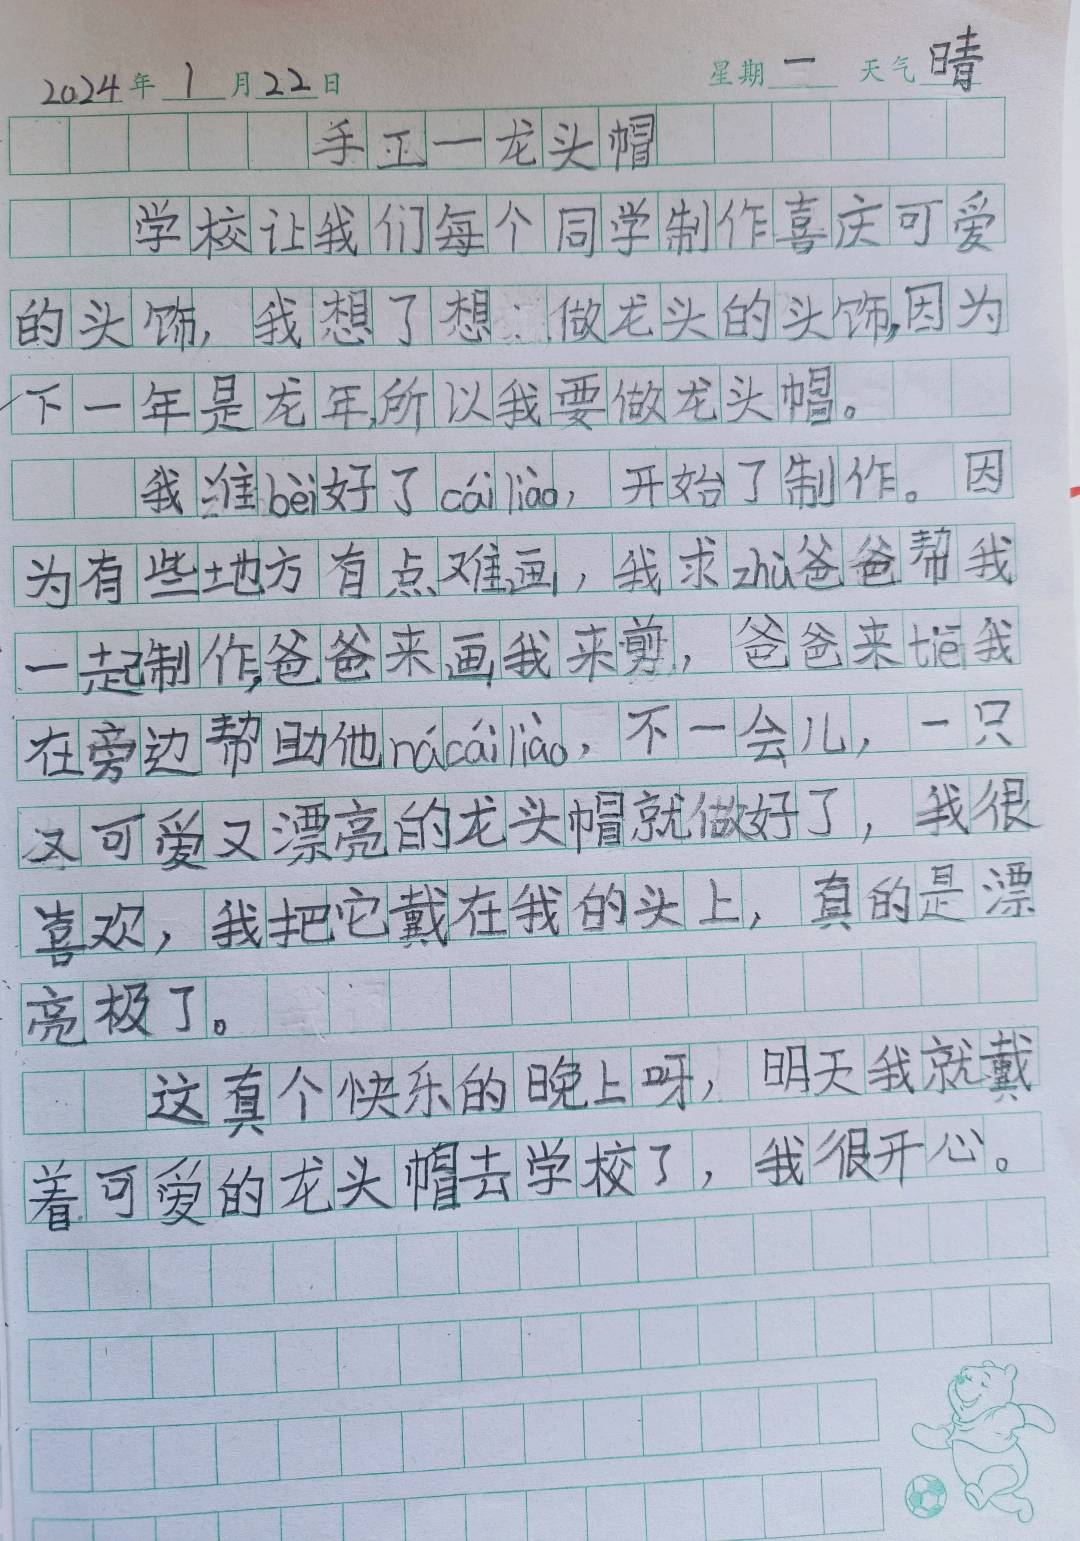 2024年1月22日 星期一 天气晴
手工一龙头帽
学校让我们每个同学制作喜庆可爱
的头饰,我想了想 做龙头的头饰,因为
下一年是龙年,所以我要做龙头帽。
我准bèi好了cái liào,开始了制作。因
为有些地方有点难画,我求zhù爸爸帮我
一起制作,爸爸来画,我来剪,爸爸来tiē我
在旁边帮助他ná cái liào,不一会儿,一只
又可爱又漂亮的龙头帽就做好了,我很
喜欢,我把它戴在我的头上,真的是漂
亮极了。
这真个快乐的晚上呀,明天我就戴
着可爱的龙头帽去学校了,我很开心。